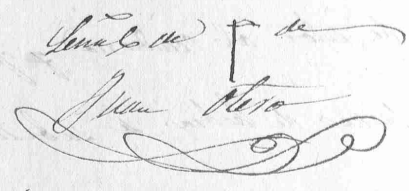 Señal de † de
Juan Otero